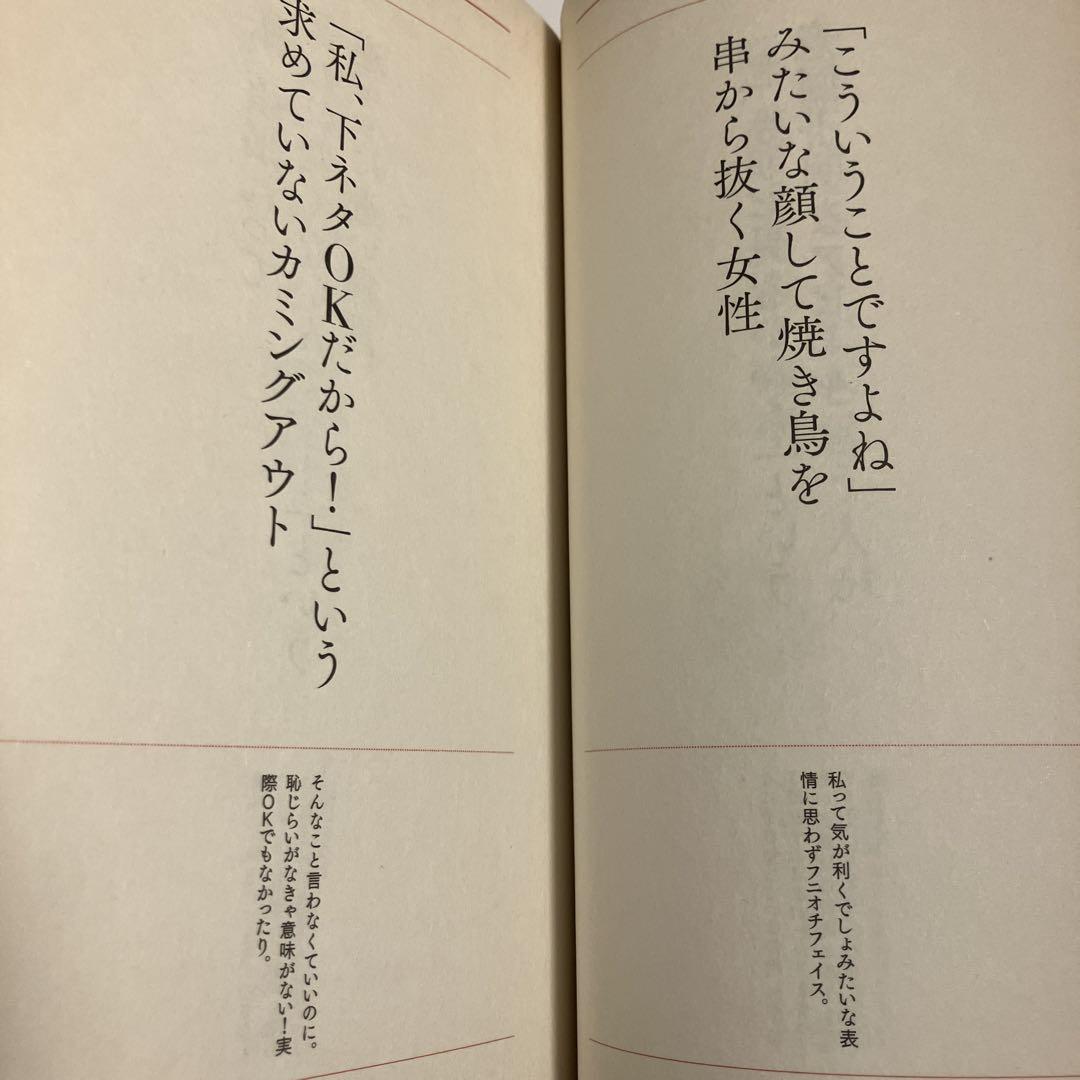 「こういうことですよね」
みたいな顔して焼き鳥を
串から抜く女性
私って気が利くでしょみたいな表
情に思わずフニオチフェイス。
「私、下ネタOKだから！」という
求めていないカミングアウト
そんなこと言わなくていいのに。
恥じらいがなきゃ意味がない！実
際OKでもなかったり。